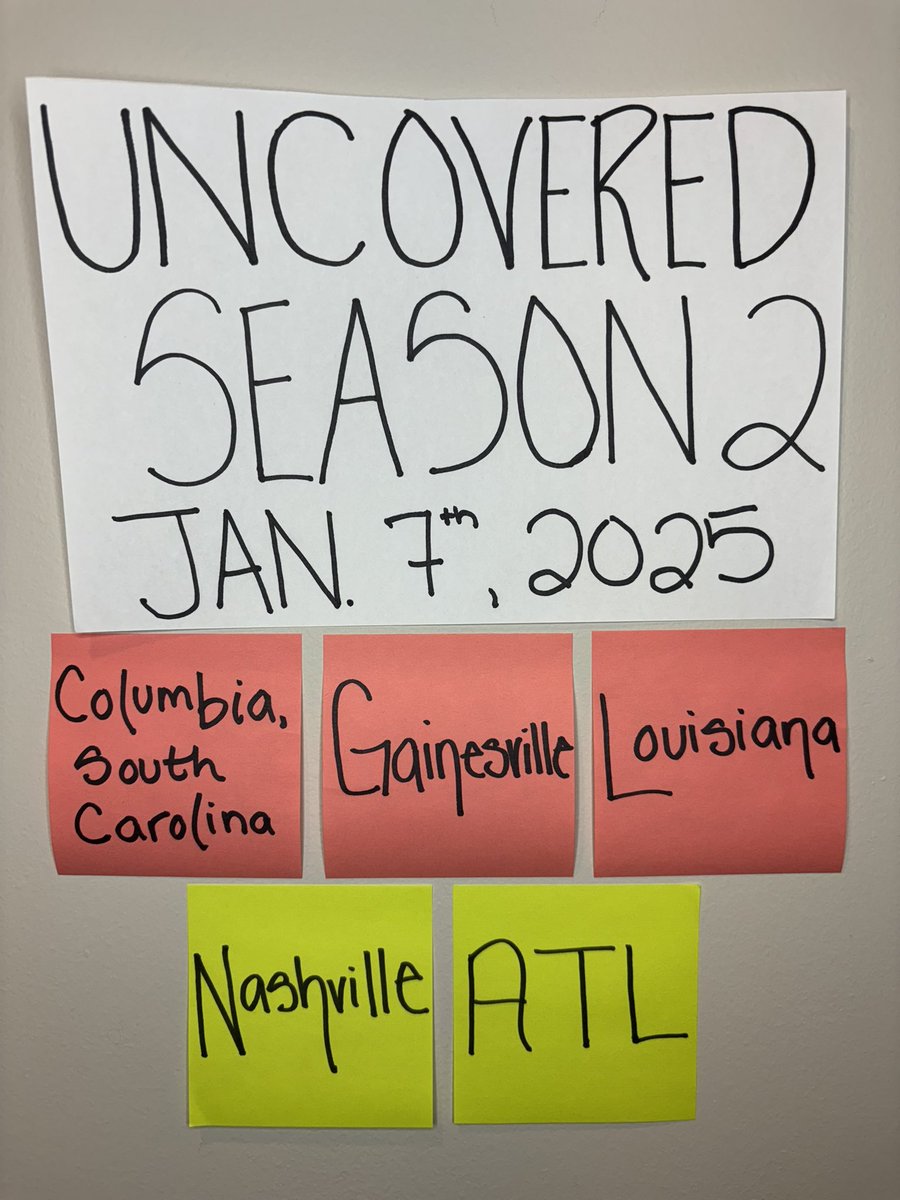 UNCOVERED
SEASON 2
JAN. 7th, 2025
Columbia,
South
Carolina
Gainesville
Louisiana
Nashville
ATL